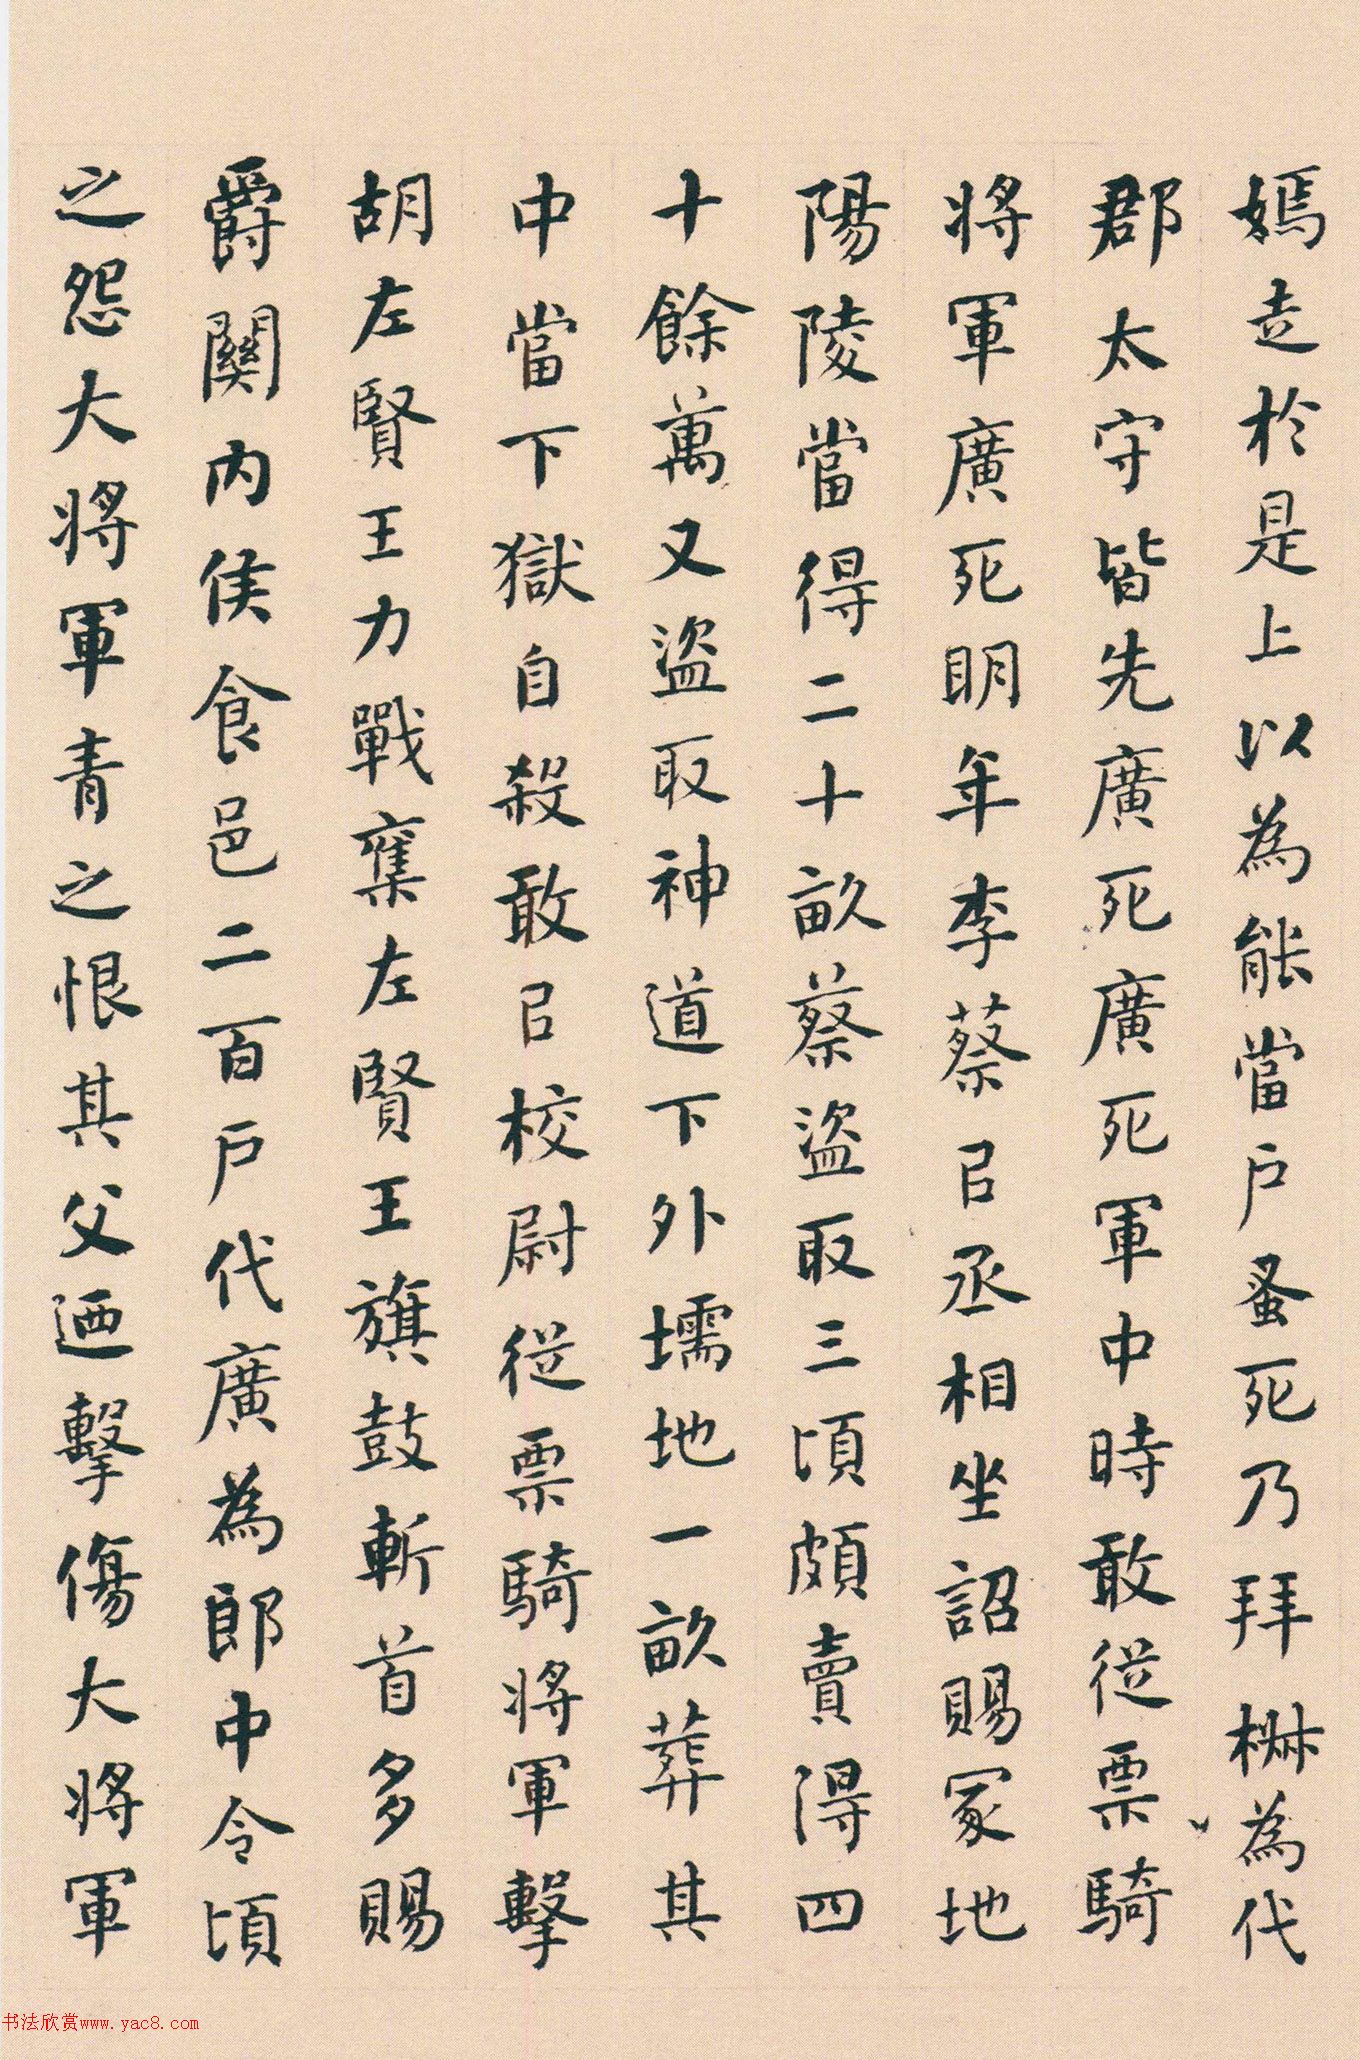 嫣走於是上以為能當戶蚤死乃拜椒為代
郡太守皆先廣死廣死軍中時敢從票騎
將軍廣死明年李蔡㠯丞相坐詔賜冢地
陽陵當得二十畝蔡盜取三頃頗賣得四
十餘萬又盜取神道下外壖地一畝葬其
中當下獄自殺敢㠯校尉從票騎將軍擊
胡左賢王力戰奪左賢王旗鼓斬首多賜
爵關內侯食邑二百戶代廣為郎中令頃
之怨大將軍青之恨其父迺擊傷大將軍
书法欣赏www.yac8.com